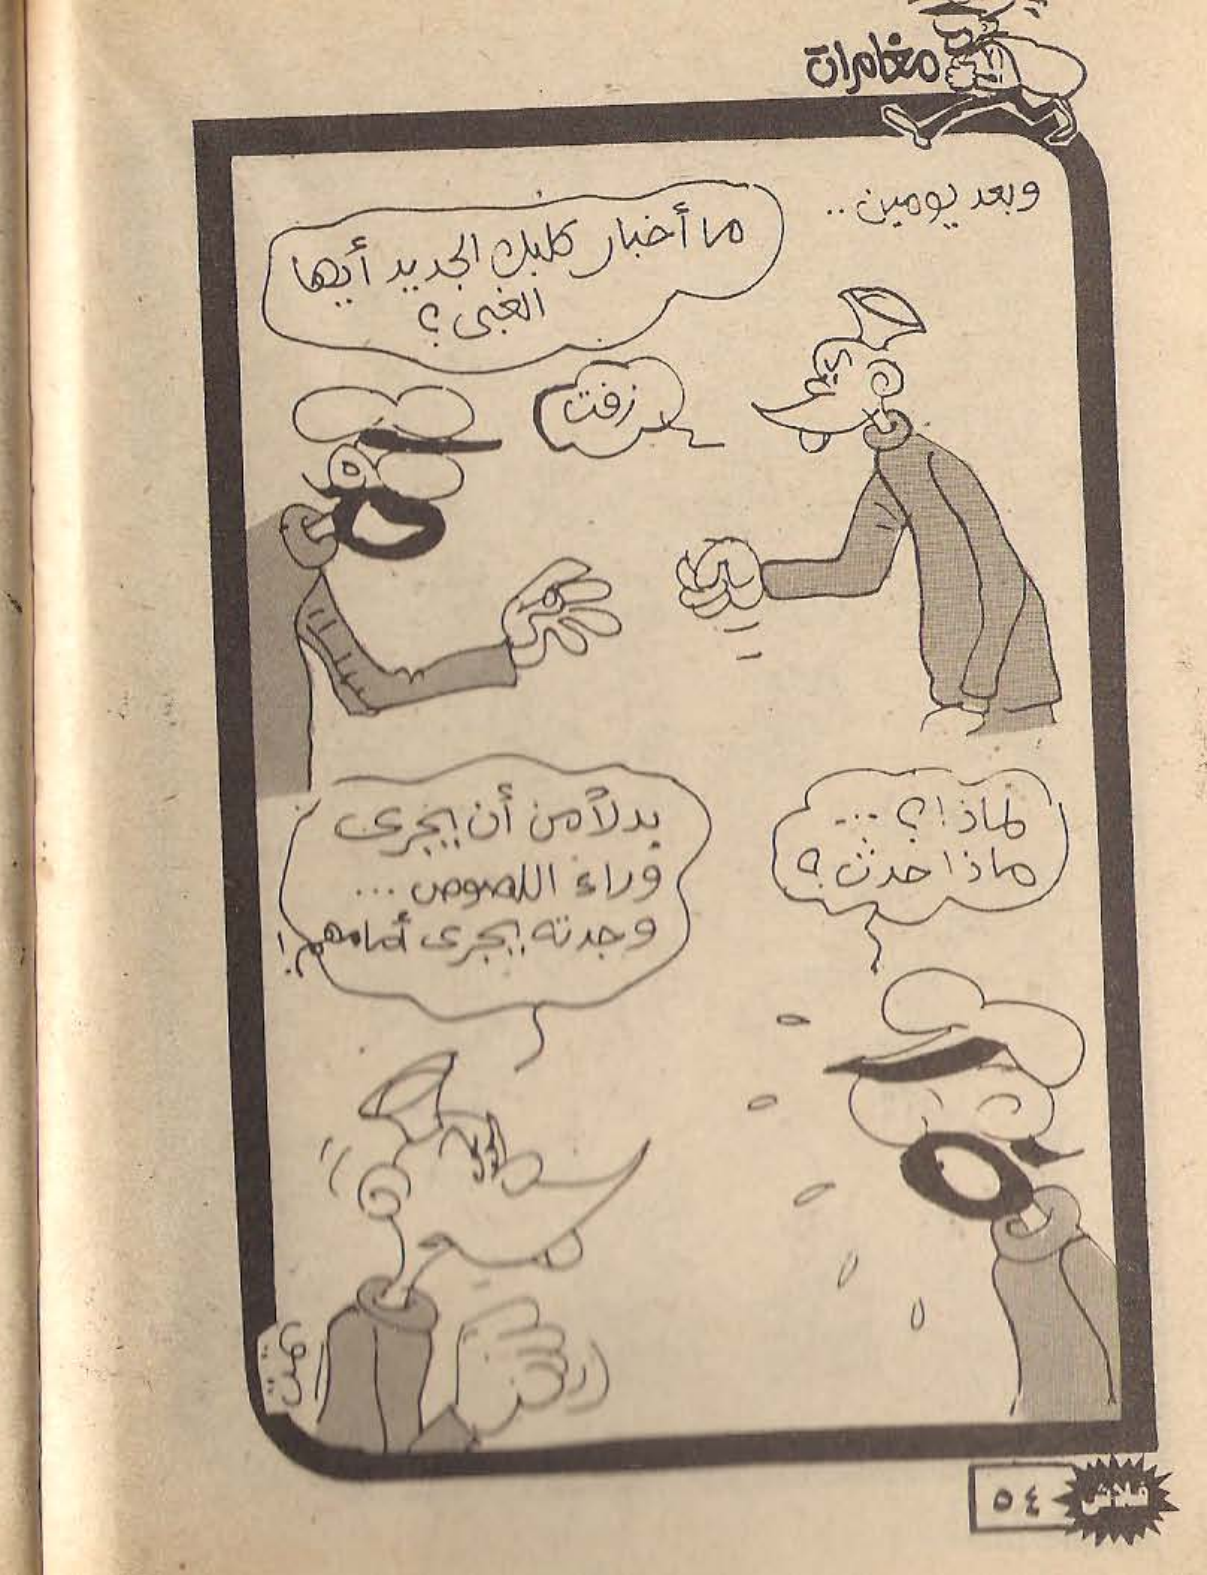 مغامرات
وبعد يومين..
ما أخبار كلبك الجديد أيها
الغبى؟
زفت
لماذا؟ ...
ماذا حدث؟
بدلاً من أن يجرى
وراء اللصوص ...
وجدته يجرى أمامهم!
تمت
٥٤
فلاش